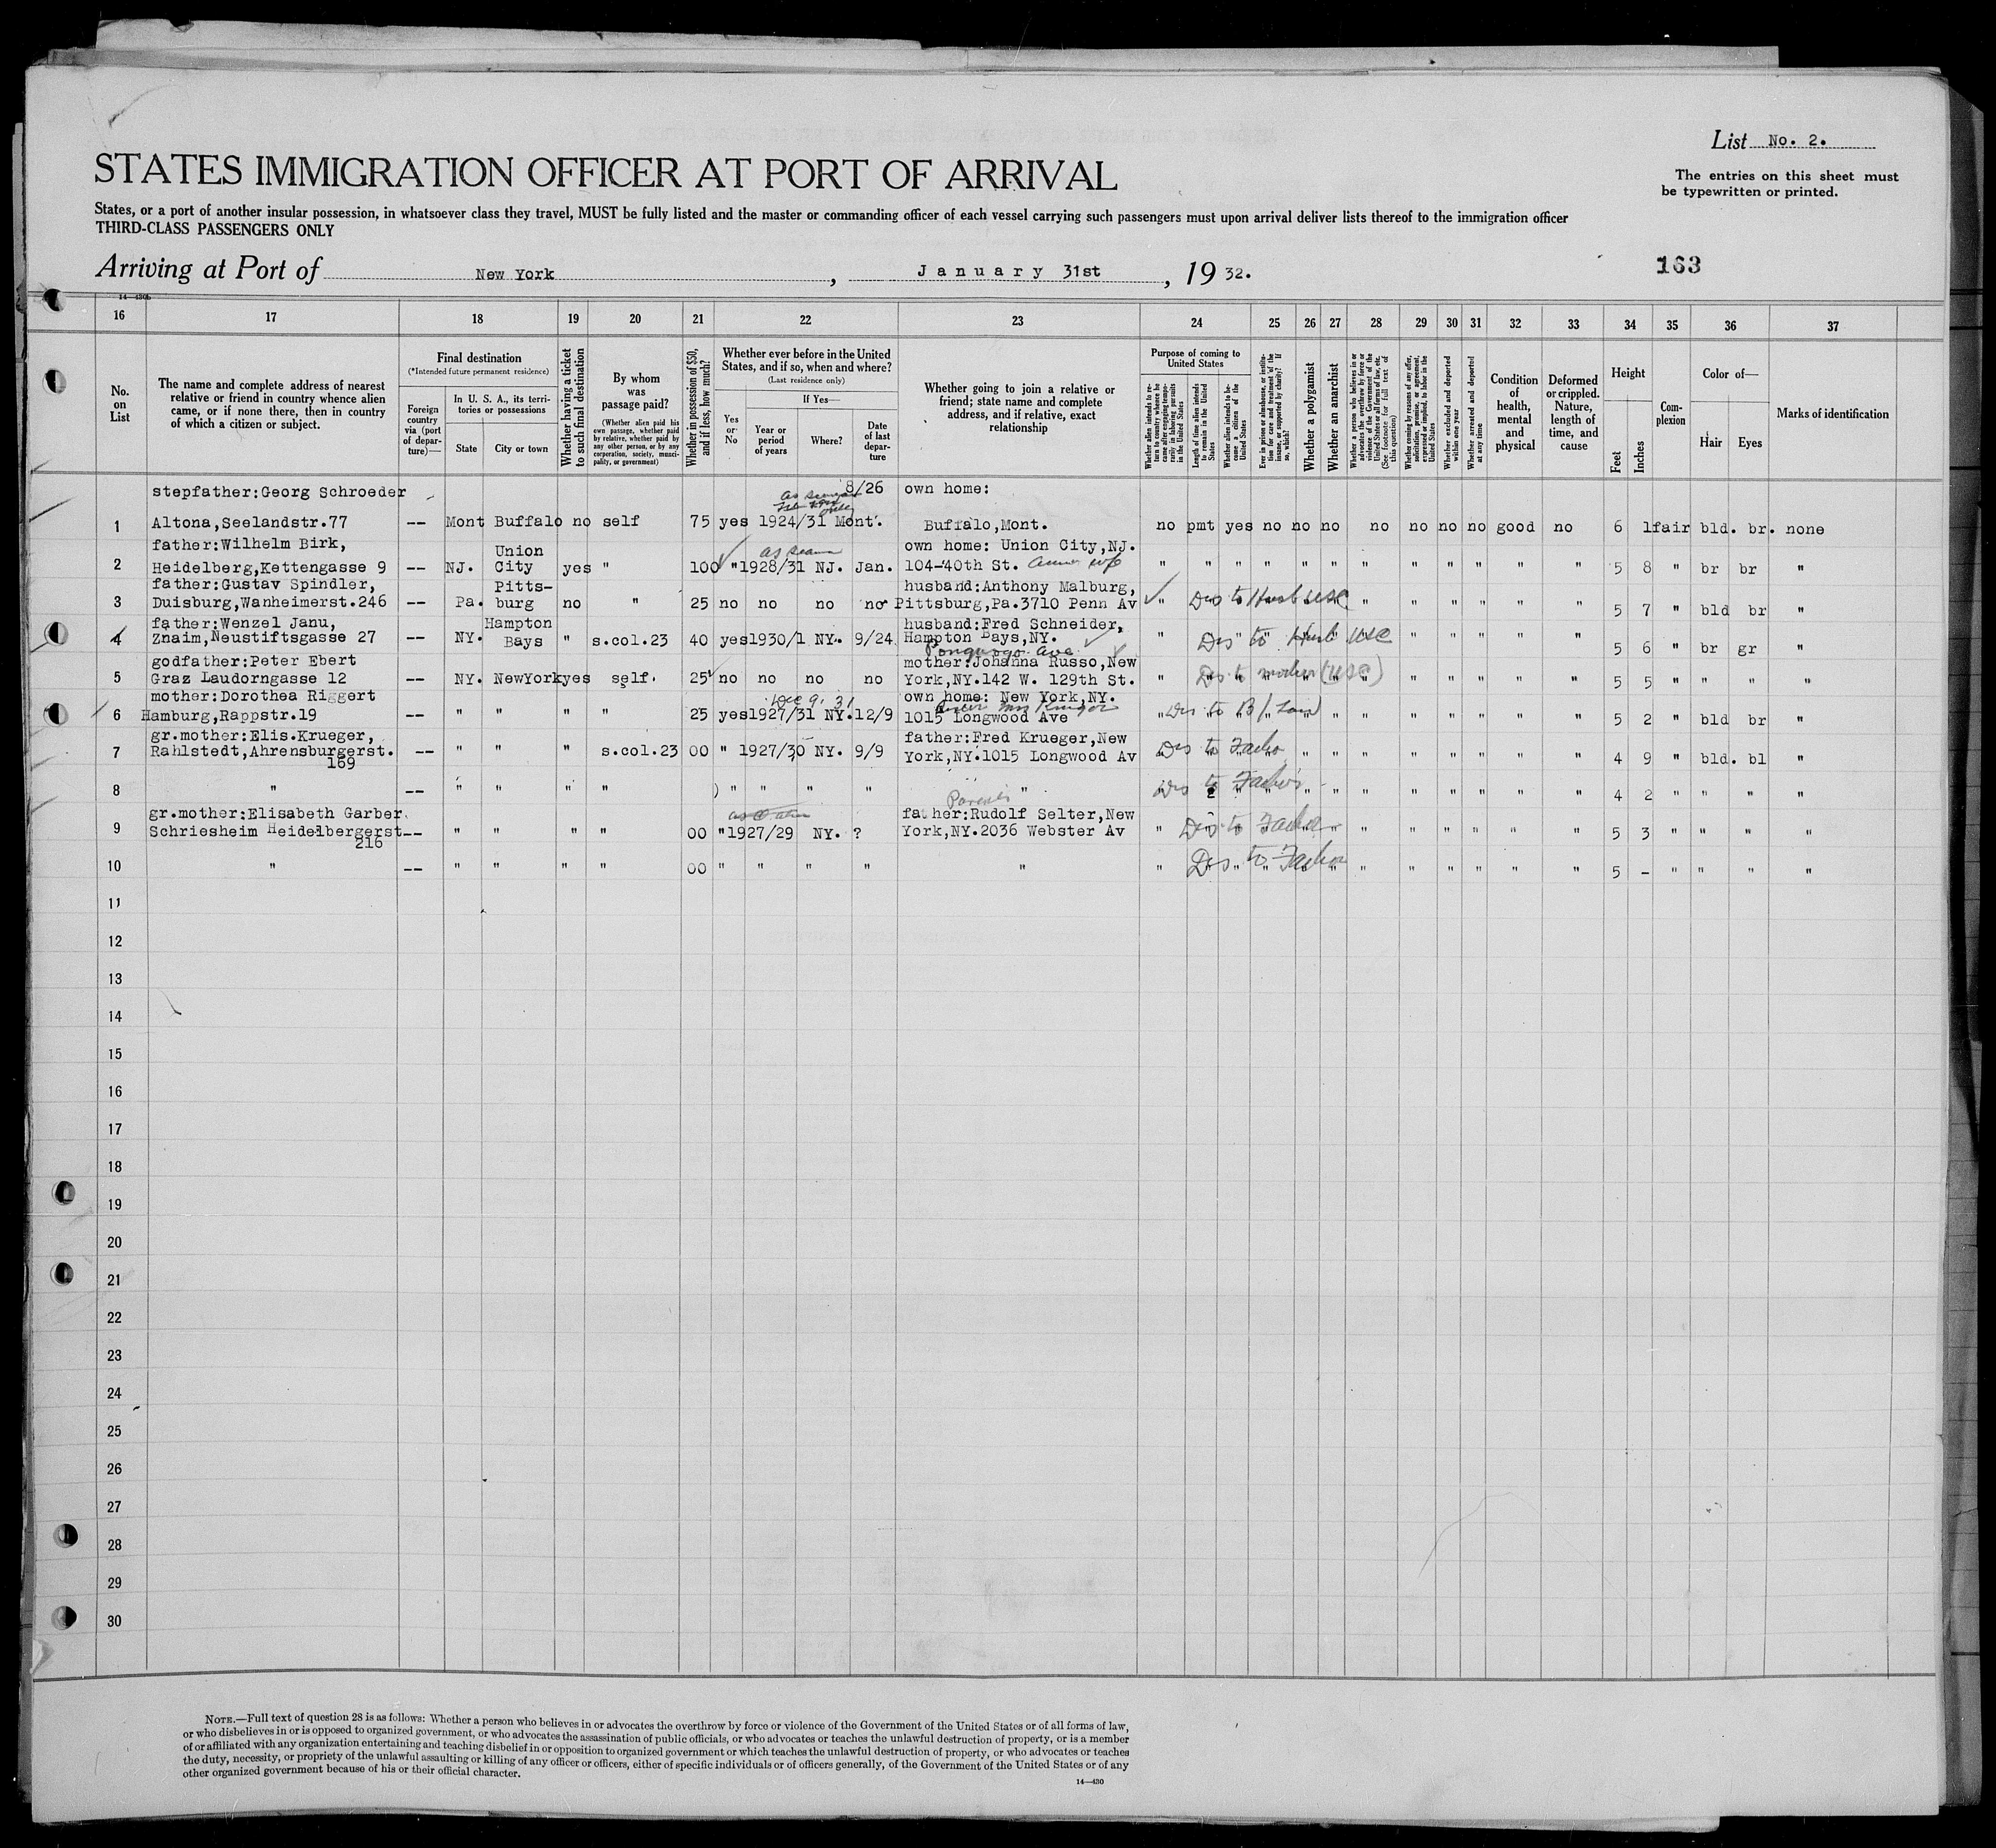 List No. 2.
STATES IMMIGRATION OFFICER AT PORT OF ARRIVAL
The entries on this sheet must
be typewritten or printed.
States, or a port of another insular possession, in whatsoever class they travel, MUST be fully listed and the master or commanding officer of each vessel carrying such passengers must upon arrival deliver lists thereof to the immigration officer
THIRD-CLASS PASSENGERS ONLY
Arriving at Port of New York, January 31st, 1932.
163
14—430b
16 17 18 19 20 21 22 23 24 25 26 27 28 29 30 31 32 33 34 35 36 37
No. on List
The name and complete address of nearest relative or friend in country whence alien came, or if none there, then in country of which a citizen or subject.
Final destination
(*Intended future permanent residence)
Foreign country via (port of departure)—
In U. S. A., its territories or possessions
State
City or town
Whether having a ticket to such final destination
By whom was passage paid?
(Whether alien paid his own passage, whether paid by relative, whether paid by any other person, or by any corporation, society, municipality, or government)
Whether in possession of $50, and if less, how much?
Whether ever before in the United States, and if so, when and where?
(Last residence only)
Yes or No
If Yes—
Year or period of years
Where?
Date of last departure
Whether going to join a relative or friend; state name and complete address, and if relative, exact relationship
Purpose of coming to United States
Whether alien intends to return to country whence he came after engaging temporarily in laboring pursuits in the United States
Length of time alien intends to remain in the United States
Whether alien intends to become a citizen of the United States
Ever in prison or almshouse, or institution for care and treatment of the insane, or supported by charity? If so, which?
Whether a polygamist
Whether an anarchist
Whether a person who believes in or advocates the overthrow by force or violence of the Government of the United States or all forms of law, etc. (See footnote for full text of this question)
Whether coming by reasons of any offer, solicitation, promise, or agreement, expressed or implied, to labor in the United States
Whether excluded and deported within one year
Whether arrested and deported at any time
Condition of health, mental and physical
Deformed or crippled. Nature, length of time, and cause
Height
Feet
Inches
Complexion
Color of—
Hair
Eyes
Marks of identification
stepfather:Georg Schroeder 8/26 own home:
1 Altona,Seelandstr.77 -- Mont Buffalo no self 75 yes 1924/31 Mont. Buffalo,Mont. no pmt yes no no no no no no no good no 6 1 fair bld. br. none
father:Wilhelm Birk, Union own home: Union City,NJ.
2 Heidelberg,Kettengasse 9 -- NJ. City yes " 100 " 1928/31 NJ. Jan. 104-40th St. " " " " " " " " " " " " 5 8 " br br "
father:Gustav Spindler, Pitts- husband:Anthony Malburg,
3 Duisburg,Wanheimerst.246 -- Pa. burg no " 25 no no no no Pittsburg,Pa.3710 Penn Av " Dis to Husb USC " " " " " " 5 7 " bld br "
father:Wenzel Janu, Hampton husband:Fred Schneider,
4 Znaim,Neustiftsgasse 27 -- NY. Bays " s.col.23 40 yes 1930/1 NY. 9/24 Hampton Bays,NY. " Dis to Husb USC " " " " " 5 6 " br gr "
Ponquogo Ave
godfather:Peter Ebert mother:Johanna Russo,New
5 Graz Laudorngasse 12 -- NY. NewYork yes self. 25 no no no no York,NY.142 W. 129th St. " Dis to mother (USC) " " " " " 5 5 " " " "
mother:Dorothea Riggert Dec 9, 31 own home: New York,NY.
6 Hamburg,Rappstr.19 -- " " " " 25 yes 1927/31 NY. 12/9 1015 Longwood Ave " Dis to B/Law " " " " " " " 5 2 " bld br "
gr.mother:Elis.Krueger, father:Fred Krueger,New
7 Rahlstedt,Ahrensburgerst. -- " " " s.col.23 00 " 1927/30 NY. 9/9 York,NY.1015 Longwood Av Dis to Father " " " " " " " 4 9 " bld. bl "
169
8 " -- " " " " ) " " " " " Dis to Father " " " " " " " 4 2 " " " "
Parents
gr.mother:Elisabeth Garber father:Rudolf Selter,New
9 Schriesheim Heidelbergerst -- " " " " 00 " 1927/29 NY. ? York,NY.2036 Webster Av " Dis to Father " " " " " " 5 3 " " " "
216
10 " -- " " " " 00 " " " " " " Dis to Father " " " " " " 5 - " " " "
11
12
13
14
15
16
17
18
19
20
21
22
23
24
25
26
27
28
29
30
NOTE.—Full text of question 28 is as follows: Whether a person who believes in or advocates the overthrow by force or violence of the Government of the United States or of all forms of law,
or who disbelieves in or is opposed to organized government, or who advocates the assassination of public officials, or who advocates or teaches the unlawful destruction of property, or is a member
of or affiliated with any organization entertaining and teaching disbelief in or opposition to organized government or which teaches the unlawful destruction of property, or who advocates or teaches
the duty, necessity, or propriety of the unlawful assaulting or killing of any officer or officers, either of specific individuals or of officers generally, of the Government of the United States or of any
other organized government because of his or their official character.
14—430